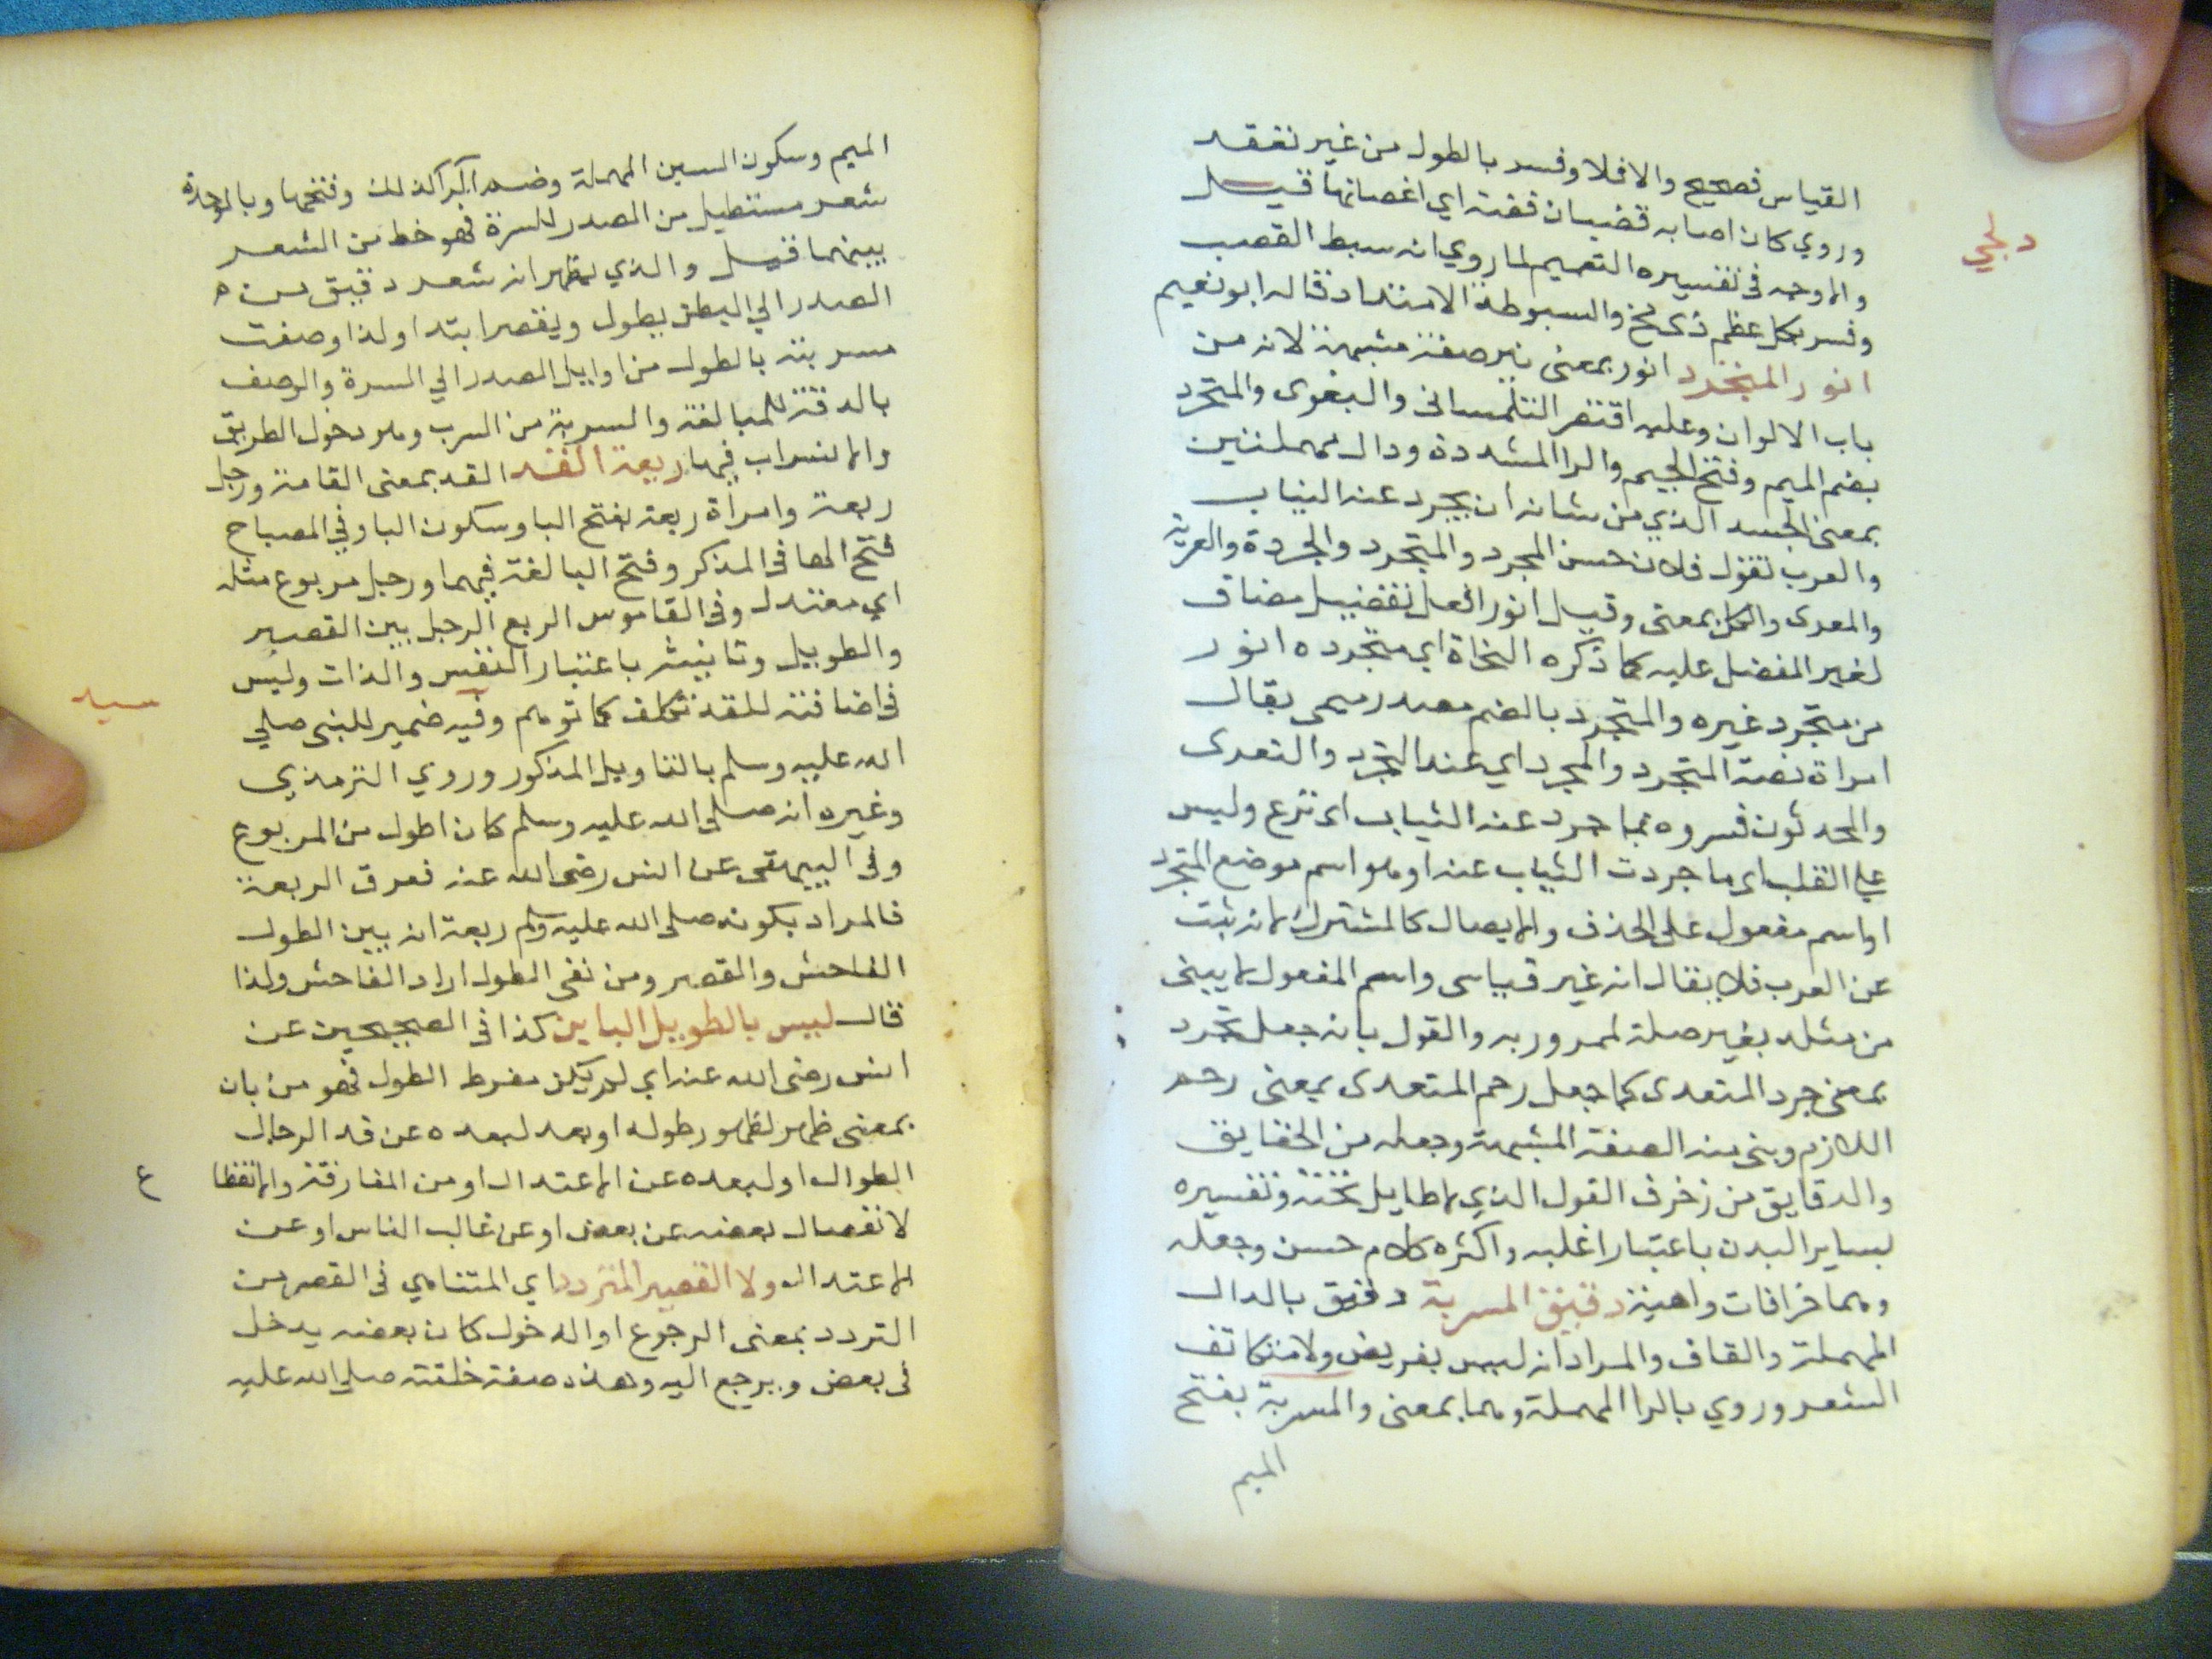 القياس فصحيح والافلا وفسر بالطول من غير تعقد
وروي كان اصابه قضبان فضة اي اغصانها قيل
دلجي
والاوجه في تفسيره التعميم لما روي انه سبط القصب
وفسر بكل عظم ذي مخ والسبوطة الامتداد قاله ابو نعيم
انور المتجرد انور بمعنى نير صفة مشبهة لانه من
باب الالوان وعليه اقتصر التلمساني والبغوى والمتجرد
بضم الميم وفتح الجيم والرا المشددة ودال مهملتين
بمعنى الجسد الذي من شانه ان يجرد عنه الثياب
والعرب تقول فلان حسن المجرد والمتجرد والجردة والعرية
والمعرى والكل بمعنى وقيل انور افعل تفضيل مضاف
لغير المفضل عليه كما ذكره النحاة اي متجرده انور
من متجرد غيره والمتجرد بالضم مصدر ميمى يقال
امراة بضة المتجرد والمجرد اي عند التجرد والتعرى
والمحدثون فسروه بما جرد عنه الثياب اى نزع وليس
علي القلب اى ما جردت الثياب عنه او هو اسم موضع المتجرد
او اسم مفعول على الحذف والايصال كالمشترك لانه ثبت
عن العرب فلا يقال انه غير قياسى واسم المفعول لا يبنى
من مثله بغير صلة لممرور به والقول بانه جعل تجرد
بمعنى جرد المتعدى كما جعل رحم المتعدى بمعنى رحم
اللازم وبنى منه الصفة المشبهة وجعله من الحقايق
والدقايق من زخرف القول الذي لا طايل تحته وتفسيره
بساير البدن باعتبار اغلبه واكثره كلام حسن وجعله
وهما خرافات واهية دقيق المسربة دقيق بالدال
المهملة والقاف والمراد انه ليس بعريض ولا متكاثف
الشعر وروي بالرا المهملة وهما بمعنى والمسربة بفتح
الميم
الميم وسكون السين المهملة وضم الرا كذلك وفتحها وبالموحدة
شعر مستطيل من الصدر للسرة فهو خط من الشعر
بينهما قيل والذي يظهر انه شعر دقيق من
الصدر الي البطن يطول ويقصر ابتدا ولذا وصفت
مسربته بالطول من اوايل الصدر الي السرة والوصف
بالدقة للمبالغة والسربة من السرب وهو دخول الطريق
والانسراب فيها ربعة القد القد بمعنى القامة ورجل
ربعة وامراة ربعة بفتح البا وسكون البا وفي المصباح
فتح الها في المذكر وفتح البا لغة فيهما ورجل مربوع مثله
اي معتدل وفي القاموس الربع الرجل بين القصير
والطويل وتانيثه باعتبار النفس والذات وليس
سيد
في اضافته للقد تكلف كما توهم وفيه ضمير للنبى صلي
الله عليه وسلم بالتاويل المذكور وروي الترمذي
وغيره انه صلى الله عليه وسلم كان اطول من المربوع
وفي البيهقى عن انس رضى الله عنه فعرق الربعة
فالمراد بكونه صلى الله عليه وسلم ربعة انه بين الطول
الفاحش والقصر ومن نفى الطول اراد الفاحش ولذا
قال ليس بالطويل الباين كذا في الصحيحين عن
انس رضى الله عنه اي لم يكن مفرط الطول فهو من بان
بمعنى ظهر لظهور طوله او بعد لبعده عن قد الرجال
الطوال او لبعده عن الاعتدال او من المفارقة والانقطا ع
لانفصال بعضه عن بعض او عن غالب الناس او عن
الاعتدال ولا القصير المتردد اي المتناهي في القصر من
التردد بمعنى الرجوع او الدخول كان بعضه يدخل
في بعض ويرجع اليه وهذه صفة خلقته صلى الله عليه